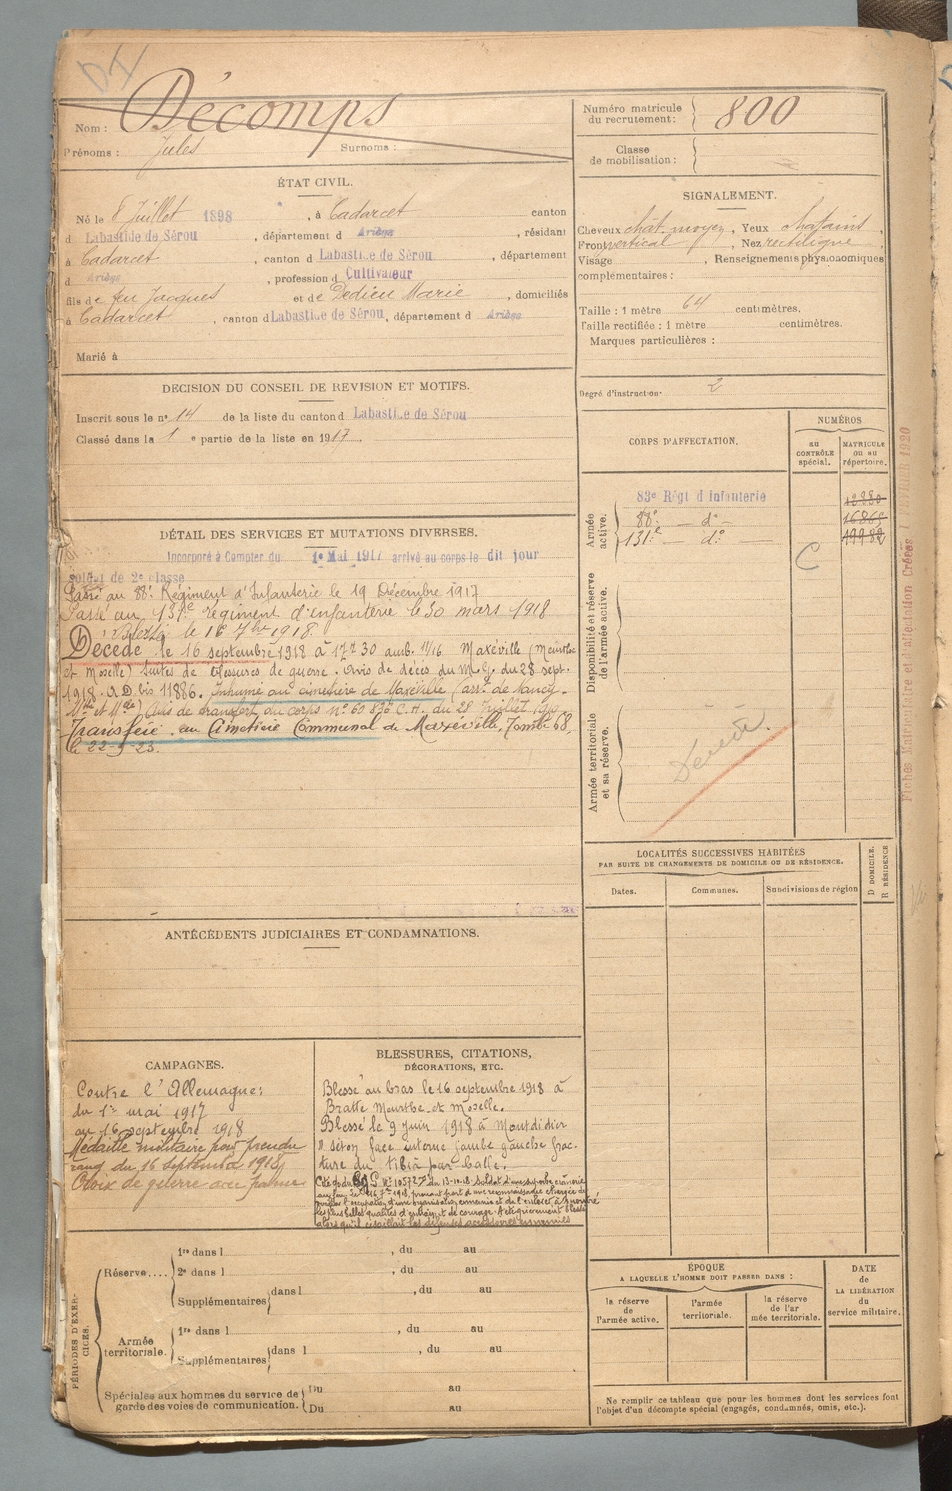 Nom : Décomps
Prénoms : Jules Surnoms :
Numéro matricule du recrutement : 800
Classe de mobilisation :
ÉTAT CIVIL.
Né le 8 Juillet 1898, à Cadarcet canton
d Labastide de Sérou, département d Ariège, résidant
à Cadarcet, canton d Labastide de Sérou, département
d Ariège, profession d Cultivateur
fils de feu Jacques et de Dedieu Marie, domiciliés
à Cadarcet, canton d Labastide de Sérou, département d Ariège
Marié à
SIGNALEMENT.
Cheveux chât. moyen, Yeux chatains,
Front vertical, Nez rectiligne,
Visage , Renseignements physionomiques
complémentaires :
Taille : 1 mètre 64 centimètres.
Taille rectifiée : 1 mètre centimètres.
Marques particulières :
Degré d'instruction. 2
DECISION DU CONSEIL DE REVISION ET MOTIFS.
Inscrit sous le n° 14 de la liste du canton d Labastide de Sérou
Classé dans la 1e partie de la liste en 1917.
CORPS D'AFFECTATION.
NUMÉROS
au CONTRÔLE spécial.
MATRICULE ou au répertoire.
Armée active.
83e Régt d'infanterie
88e — d° —
131e — d° —
C
Disponibilité et réserve de l'armée active.
Armée territoriale et sa réserve.
Décédé.
DÉTAIL DES SERVICES ET MUTATIONS DIVERSES.
Incorporé à Compter du 1er Mai 1917 arrivé au corps le dit jour
soldat de 2e classe
Passé au 88e Régiment d'Infanterie le 19 Décembre 1917
Passé au 131e régiment d'infanterie le 30 mars 1918
Blessé le 16 7bre 1918.
Décédé le 16 septembre 1918 à 17h30 amb. 11/16 Maxéville (Meurthe
et Moselle) suites de blessures de guerre. Avis de décès du M. G. du 28 sept.
1918. A.D. bis 11886. Inhumé au cimetière de Maxéville (arrt de Nancy -
Mthe et Mlle) Avis de transfert du corps n° C.A. du 28 Juillet
Transféré au Cimetière Communal de Maxéville, Tombe 68,
le 22-9-23.
Fiches Matricule et d'affectation Créées FÉVRIER 1920
LOCALITÉS SUCCESSIVES HABITÉES
PAR SUITE DE CHANGEMENTS DE DOMICILE OU DE RÉSIDENCE.
Dates. Communes. Subdivisions de région
D DOMICILE. R RÉSIDENCE
ANTÉCÉDENTS JUDICIAIRES ET CONDAMNATIONS.
CAMPAGNES.
Contre l'Allemagne :
du 1er mai 1917
au 16 septembre 1918
Médaille militaire pour prendre
rang du 16 Septembre 1918
Croix de guerre avec palme
BLESSURES, CITATIONS,
DÉCORATIONS, ETC.
Blessé au bras le 16 septembre 1918 à
Bratte Meurthe et Moselle.
Blessé le 9 Juin 1918 à Montdidier
séton face interne jambe gauche frac-
ture du tibia par balle.
Cité G.Q.G. N° 10572 D du 13-10-18. Soldat d'une
au feu. Le 16 7bre 1918, prenant part à une reconnaissance chargée de
l'occupation d'une organisation ennemie
les plus belles qualités d'entrain et de courage. A été grièvement blessé
alors qu'il cisaillait les défenses accessoires ennemies
PÉRIODES D'EXERCICES.
Réserve....
1re dans l , du au
2e dans l , du au
Supplémentaires dans l , du au
Armée territoriale.
1re dans l , du au
Supplémentaires dans l , du au
Spéciales aux hommes du service de garde des voies de communication.
Du au
Du au
ÉPOQUE
A LAQUELLE L'HOMME DOIT PASSER DANS :
la réserve de l'armée active.
l'armée territoriale.
la réserve de l'armée territoriale.
DATE de LA LIBÉRATION du service militaire.
Ne remplir ce tableau que pour les hommes dont les services font
l'objet d'un décompte spécial (engagés, condamnés, omis, etc.).